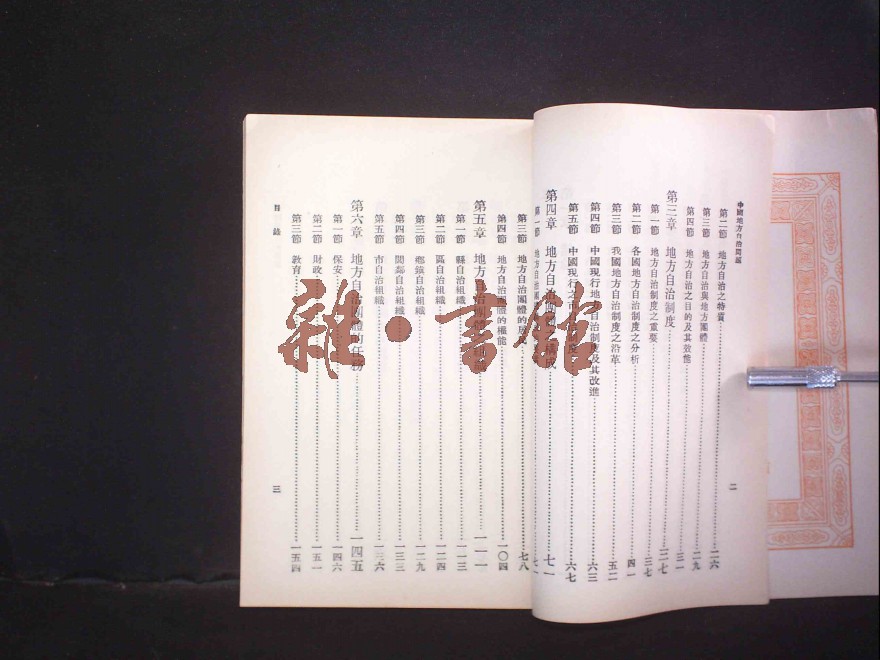 中國地方自治問題
第二節 地方自治之特質 二六
第三節 地方自治與地方團體 二九
第四節 地方自治之目的及其效能 三一
第三章 地方自治制度 三七
第一節 地方自治制度之重要 三七
第二節 各國地方自治制度之分析 四一
第三節 我國地方自治制度之沿革 五二
第四節 中國現行地方自治制度及其改進 六三
第五節 中國現行之市自治制度 六七
第四章 地方自治團體之構成 七一
第一節 地方自治團 七一
二
第三節 地方自治團體的居民 七八
第四節 地方自治團體的權能 一〇四
第五章 地方自治團體 一一一
第一節 縣自治組織 一一三
第二節 區自治組織 一二四
第三節 鄉鎮自治組織 一二九
第四節 閭鄰自治組織 一三三
第五節 市自治組織 一三六
第六章 地方自治團體的任務 一四五
第一節 保安 一四六
第二節 財政 一五一
第三節 教育 一五四
目錄
三
雜·書館